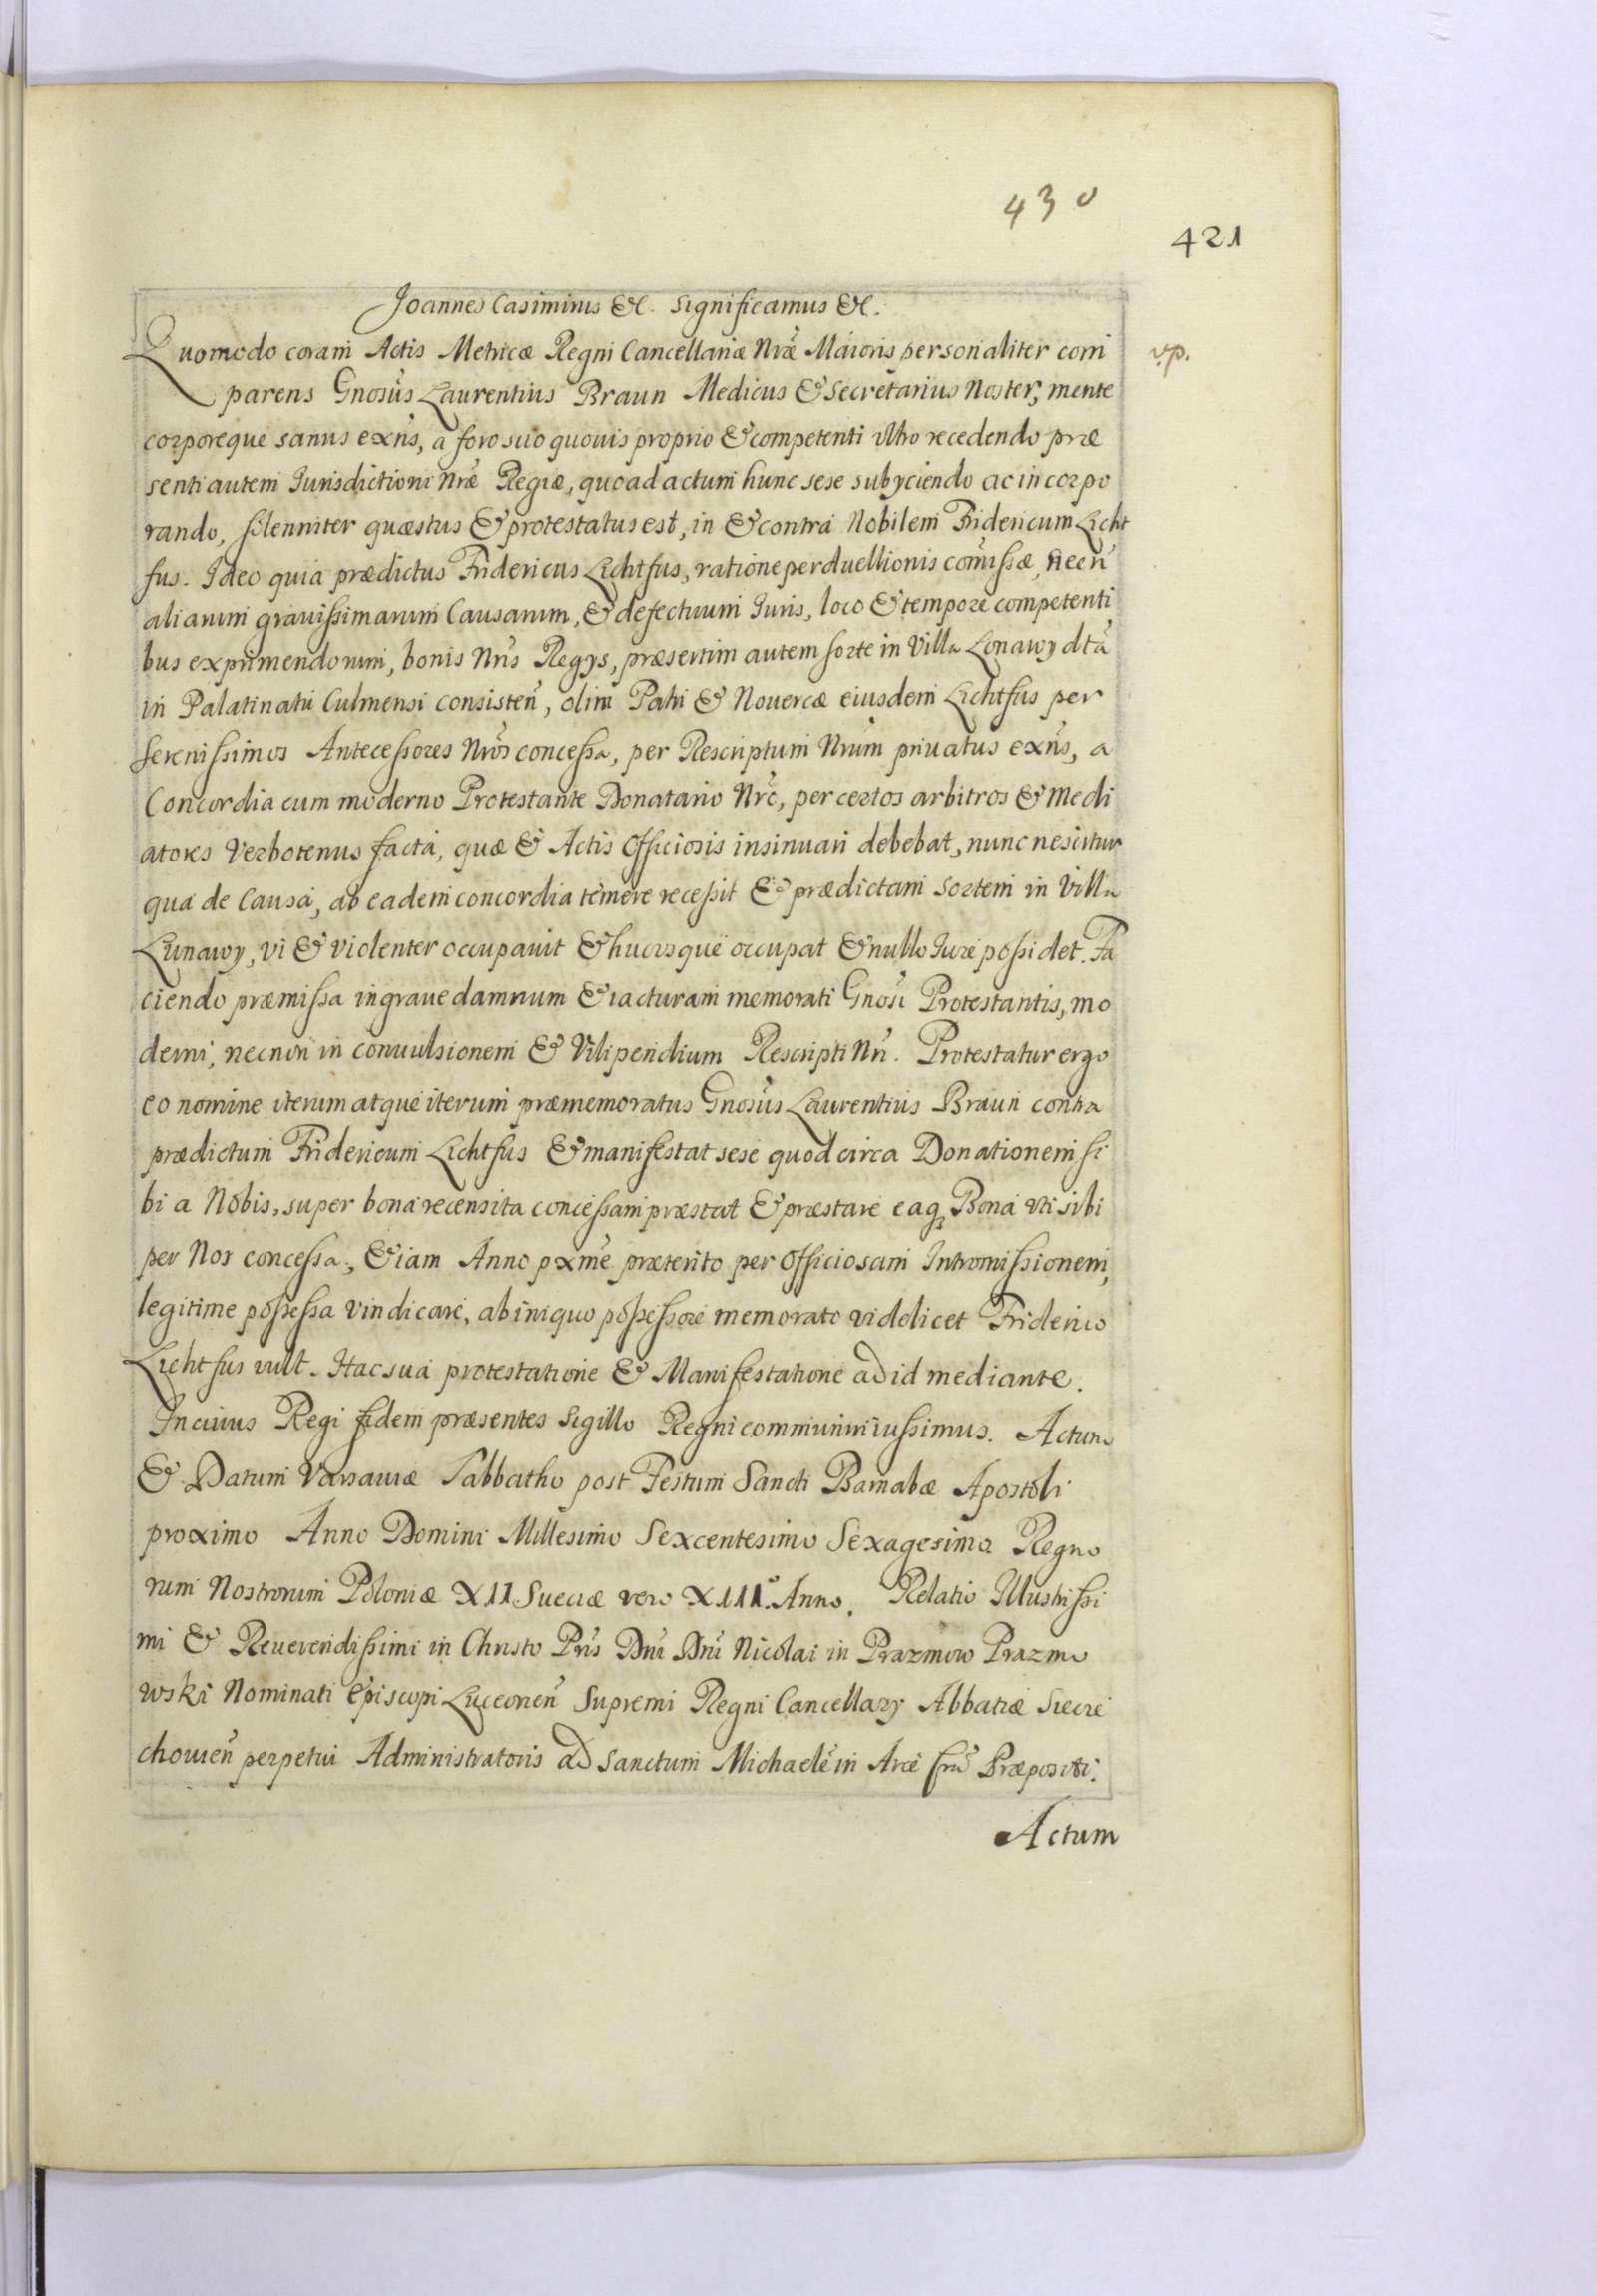 430
421
Joannes Casimirus &c. Significamus &c.
Quomodo coram Actis Metricæ Regni Cancellariæ Nræ Maioris personaliter com
vp.
parens Gnosus Laurentius Braun Medicus & Secretarius Noster, mente
corporeque sanus exns, a foro suo quouis proprio & competenti vltro recedendo præ
senti autem Jurisdictioni Nræ Regiæ, quoad actum hunc sese subyciendo ac incorpo
rando, solenniter quæstus & protestatus est, in & contra Nobilem Fridericum Licht
fus. Ideo quia prædictus Fridericus Lichtfus, ratione perduellionis comissæ, necn
aliarum grauissimarum Causarum, & defectuum Iuris, loco & tempore competenti
bus exprimendorum, bonis Nris Regys, præsertim autem sorte in Villa Lonawy dta
in Palatinatu Culmensi consisten, olim Patri & Nouercæ eiusdem Lichtfus per
Serenissimos Antecessores Nros concessa, per Rescriptum Nrum priuatus exns, a
Concordia cum moderno Protestante Donatario Nro, per certos arbitros & Medi
atores Verbotenus facta, quæ & Actis Officiosis insinuari debebat, nunc nescitur
qua de Causa, ab eadem concordia temere recessit & prædictam sortem in Villa
Lunawy, vi & violenter occupauit & hucusque occupat & nullo Iure possidet. Fa
ciendo præmissa in graue damnum & iacturam memorati Gnosi Protestantis, mo
derni, necnon in conuulsionem & Vilipendium Rescripti Nri. Protestatur ergo
eo nomine iterum atque iterum præmemoratus Gnosus Laurentius Braun contra
prædictum Fridericum Lichtfus & manifestat sese quod circa Donationem si
bi a Nobis, super bona recensita concessam præstat & præstare eaq3 Bona vti sibi
per Nos concessa, & iam Anno pxme præterito per Officiosam Intromissionem,
legitime possessa vindicare, ab iniquo possessore memorato videlicet Friderico
Lichtfus vult. Hac sua protestatione & Manifestatione ad id mediante.
In cuius Regi fidem præsentes Sigillo Regni communiri iussimus. Actum
& Datum Varsauiæ Sabbatho post Festum Sancti Barnabæ Apostoli
proximo Anno Domini Millesimo Sexcentesimo Sexagesimo Regno
rum Nostrorum Poloniæ XII Sueciæ vero XIII. Anno. Relatio Illustrissi
mi & Reuerendissimi in Christo Pris Dni Dni Nicolai in Prazmow Prazmo
wski Nominati Episcopi Luceoren Supremi Regni Cancellary Abbatiæ Siecie
chouien perpetui Administratoris ad Sanctum Michaele in Arce Præpositi.
Actum